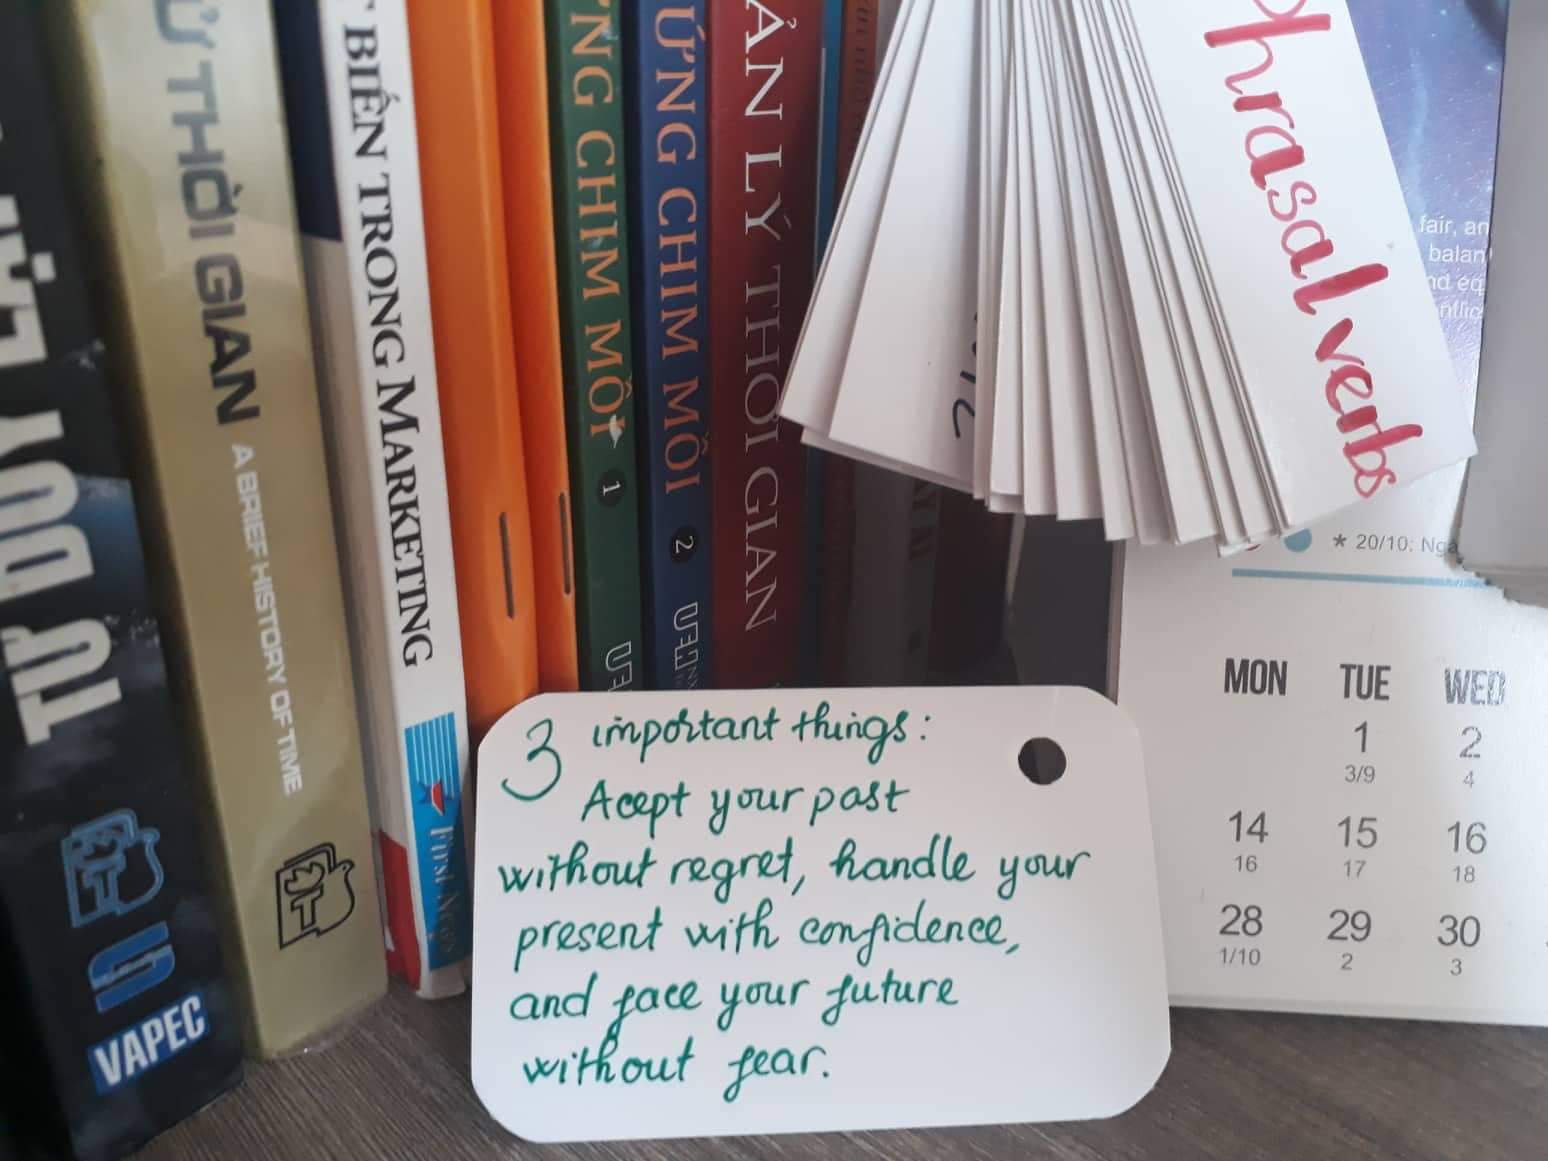 TƯ DUY
VAPEC
THỜI GIAN
A BRIEF HISTORY OF TIME
BIẾN TRONG MARKETING
CHIM MỒI
1
CHIM MỒI
2
LÝ THỜI GIAN
phrasal verbs
fair, an
★ 20/10:
MON TUE WED
1 2
3/9 4
14 15 16
16 17 18
28 29 30
1/10 2 3
3 important things:
Acept your past
without regret, handle your
present with confidence,
and face your future
without fear.